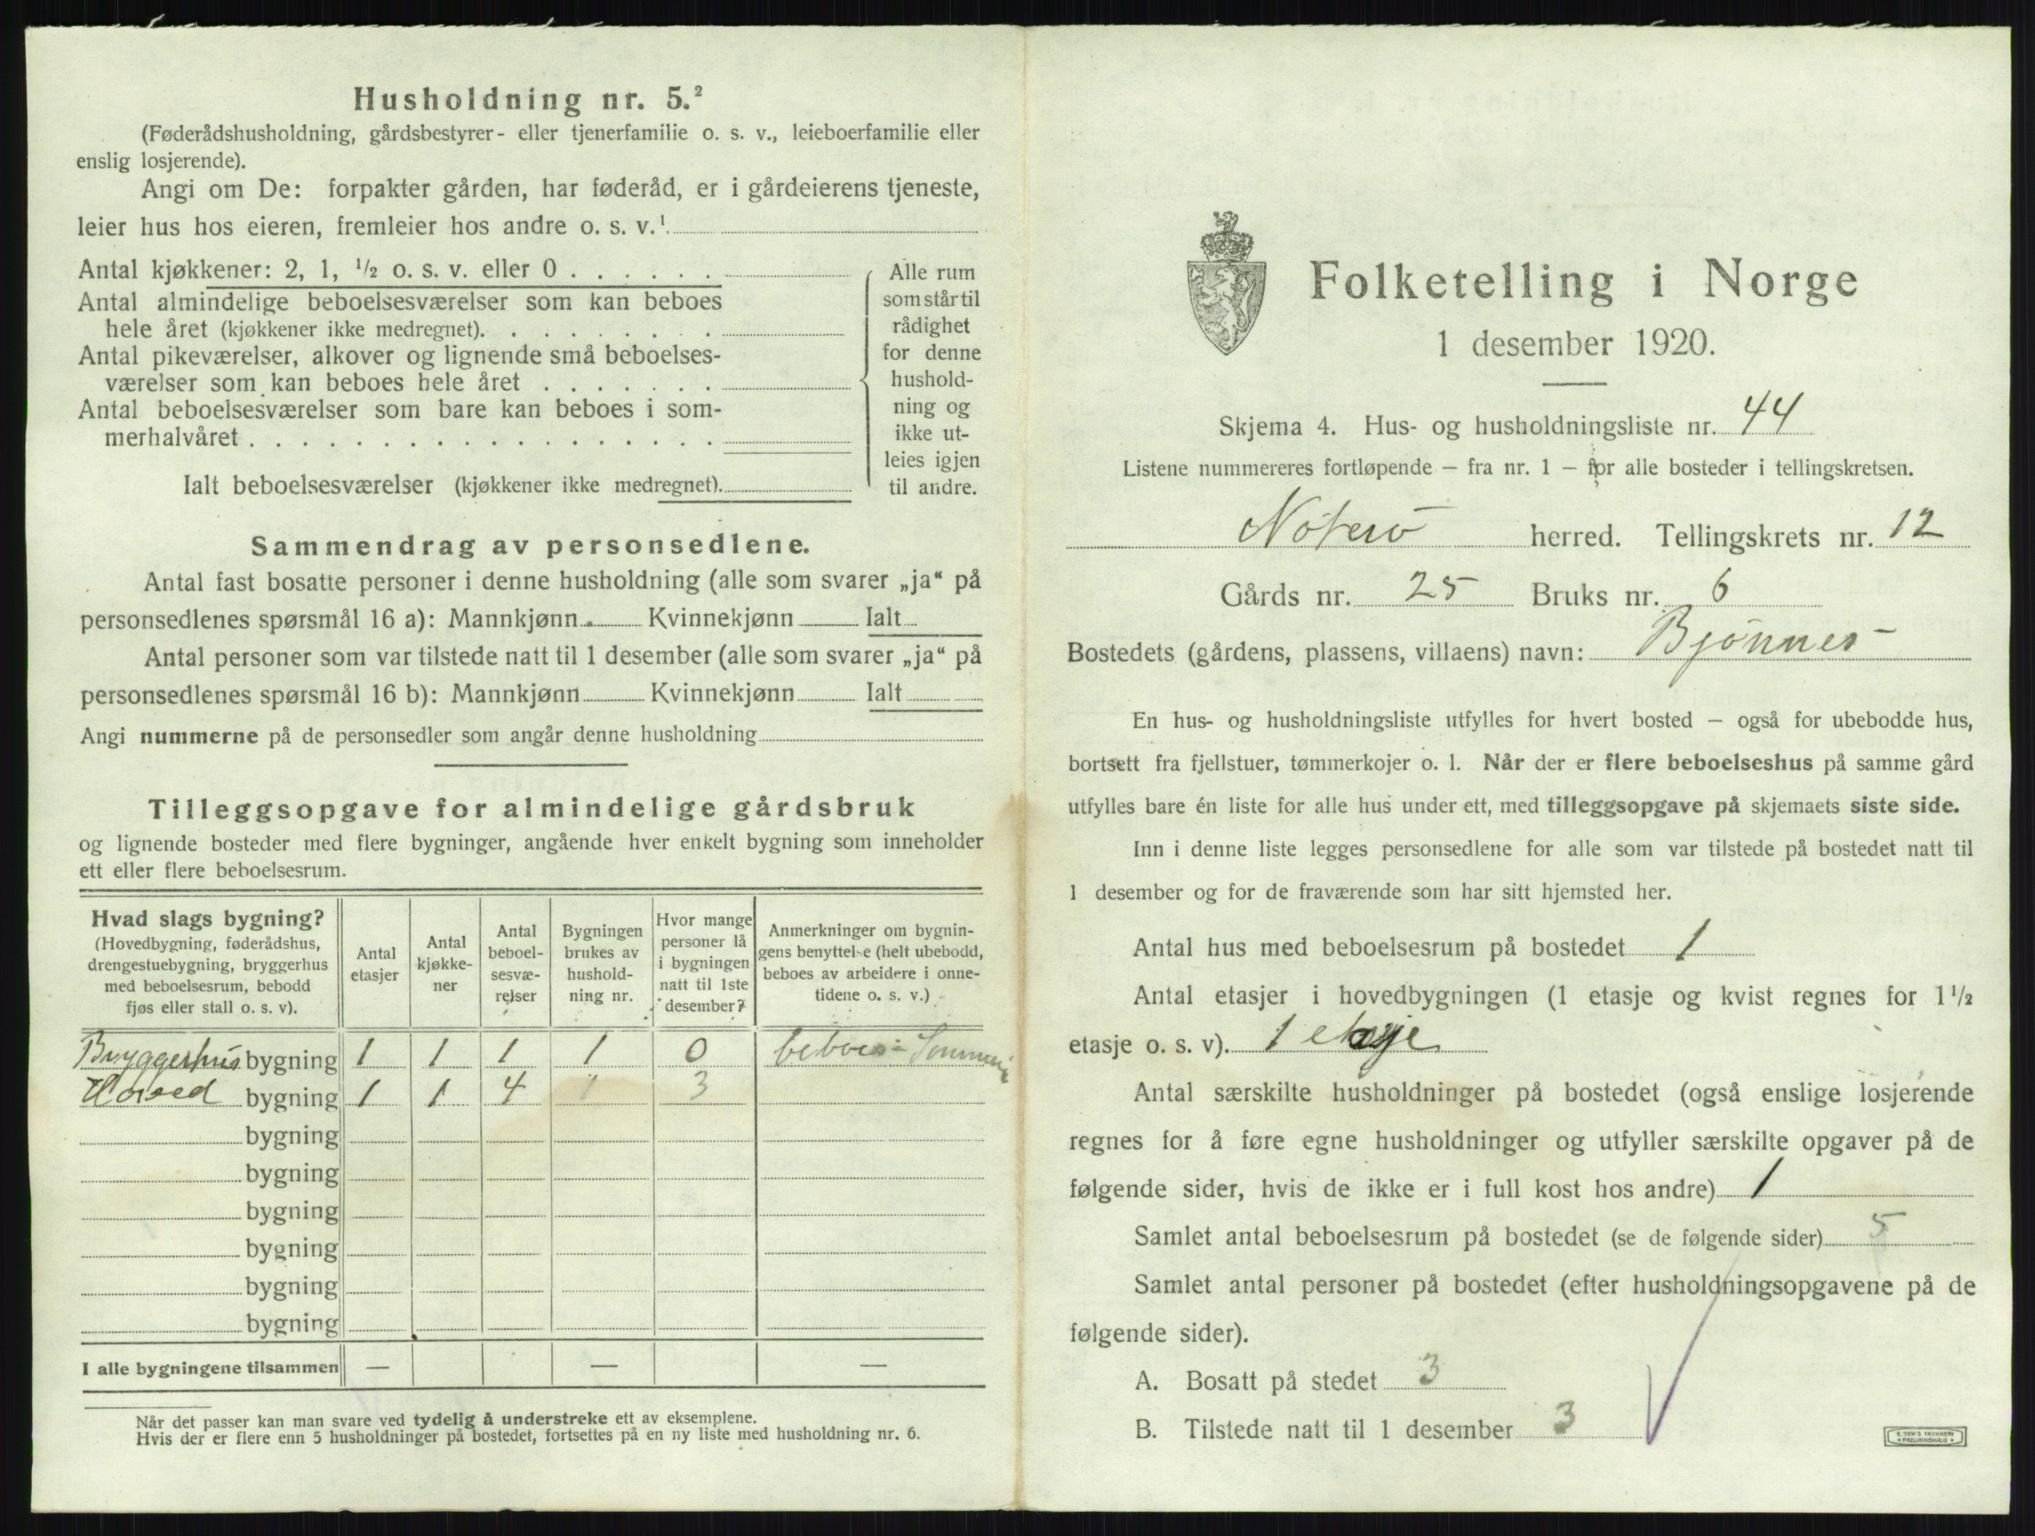 Husholdning nr. 5.²
(Føderådshusholdning, gårdsbestyrer- eller tjenerfamilie o. s. v., leieboerfamilie eller
enslig losjerende).
Angi om De: forpakter gården, har føderåd, er i gårdeierens tjeneste,
leier hus hos eieren, fremleier hos andre o. s. v.¹
Antal kjøkkener: 2, 1, ½ o. s. v. eller 0 . . . . . .
Antal almindelige beboelsesværelser som kan beboes
hele året (kjøkkener ikke medregnet). . . . . . . . .
Antal pikeværelser, alkover og lignende små beboelses-
værelser som kan beboes hele året . . . . . . .
Antal beboelsesværelser som bare kan beboes i som-
merhalvåret . . . . . . . . . . . . . . . . . .
Ialt beboelsesværelser (kjøkkener ikke medregnet).
Alle rum
som står til
rådighet
for denne
hushold-
ning og
ikke ut-
leies igjen
til andre.
Sammendrag av personsedlene.
Antal fast bosatte personer i denne husholdning (alle som svarer „ja“ på
personsedlenes spørsmål 16 a): Mannkjønn Kvinnekjønn Ialt
Antal personer som var tilstede natt til 1 desember (alle som svarer „ja“ på
personsedlenes spørsmål 16 b): Mannkjønn Kvinnekjønn Ialt
Angi nummerne på de personsedler som angår denne husholdning
Tilleggsopgave for almindelige gårdsbruk
og lignende bosteder med flere bygninger, angående hver enkelt bygning som inneholder
ett eller flere beboelsesrum.
Hvad slags bygning?
(Hovedbygning, føderådshus,
drengestuebygning, bryggerhus
med beboelsesrum, bebodd
fjøs eller stall o. s. v).
Antal
etasjer
Antal
kjøkke-
ner
Antal
beboel-
sesvæ-
relser
Bygningen
brukes av
hushold-
ning nr.
Hvor mange
personer lå
i bygningen
natt til 1ste
desember?
Anmerkninger om bygnin-
gens benyttelse (helt ubebodd,
beboes av arbeidere i onne-
tidene o. s. v.)
Bryggerhus bygning 1 1 1 1 0 beboes i Sommeren
Hoved bygning 1 1 4 1 3
bygning
bygning
bygning
bygning
bygning
bygning
I alle bygningene tilsammen — — —
Når det passer kan man svare ved tydelig å understreke ett av eksemplene.
Hvis der er flere enn 5 husholdninger på bostedet, fortsettes på en ny liste med husholdning nr. 6.
Folketelling i Norge
1 desember 1920.
Skjema 4. Hus- og husholdningsliste nr. 44
Listene nummereres fortløpende – fra nr. 1 – for alle bosteder i tellingskretsen.
Nøterø herred. Tellingskrets nr. 12
Gårds nr. 25 Bruks nr. 6
Bostedets (gårdens, plassens, villaens) navn: Bjønnes
En hus- og husholdningsliste utfylles for hvert bosted – også for ubebodde hus,
bortsett fra fjellstuer, tømmerkojer o. l. Når der er flere beboelseshus på samme gård
utfylles bare én liste for alle hus under ett, med tilleggsopgave på skjemaets siste side.
Inn i denne liste legges personsedlene for alle som var tilstede på bostedet natt til
1 desember og for de fraværende som har sitt hjemsted her.
Antal hus med beboelsesrum på bostedet 1
Antal etasjer i hovedbygningen (1 etasje og kvist regnes for 1½
etasje o. s. v). 1 etasje
Antal særskilte husholdninger på bostedet (også enslige losjerende
regnes for å føre egne husholdninger og utfyller særskilte opgaver på de
følgende sider, hvis de ikke er i full kost hos andre) 1
Samlet antal beboelsesrum på bostedet (se de følgende sider) 5
Samlet antal personer på bostedet (efter husholdningsopgavene på de
følgende sider).
A. Bosatt på stedet 3
B. Tilstede natt til 1 desember 3
E. SEM'S TRYKKERI
FREDRIKSHALD